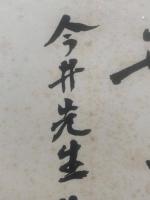 今井先生